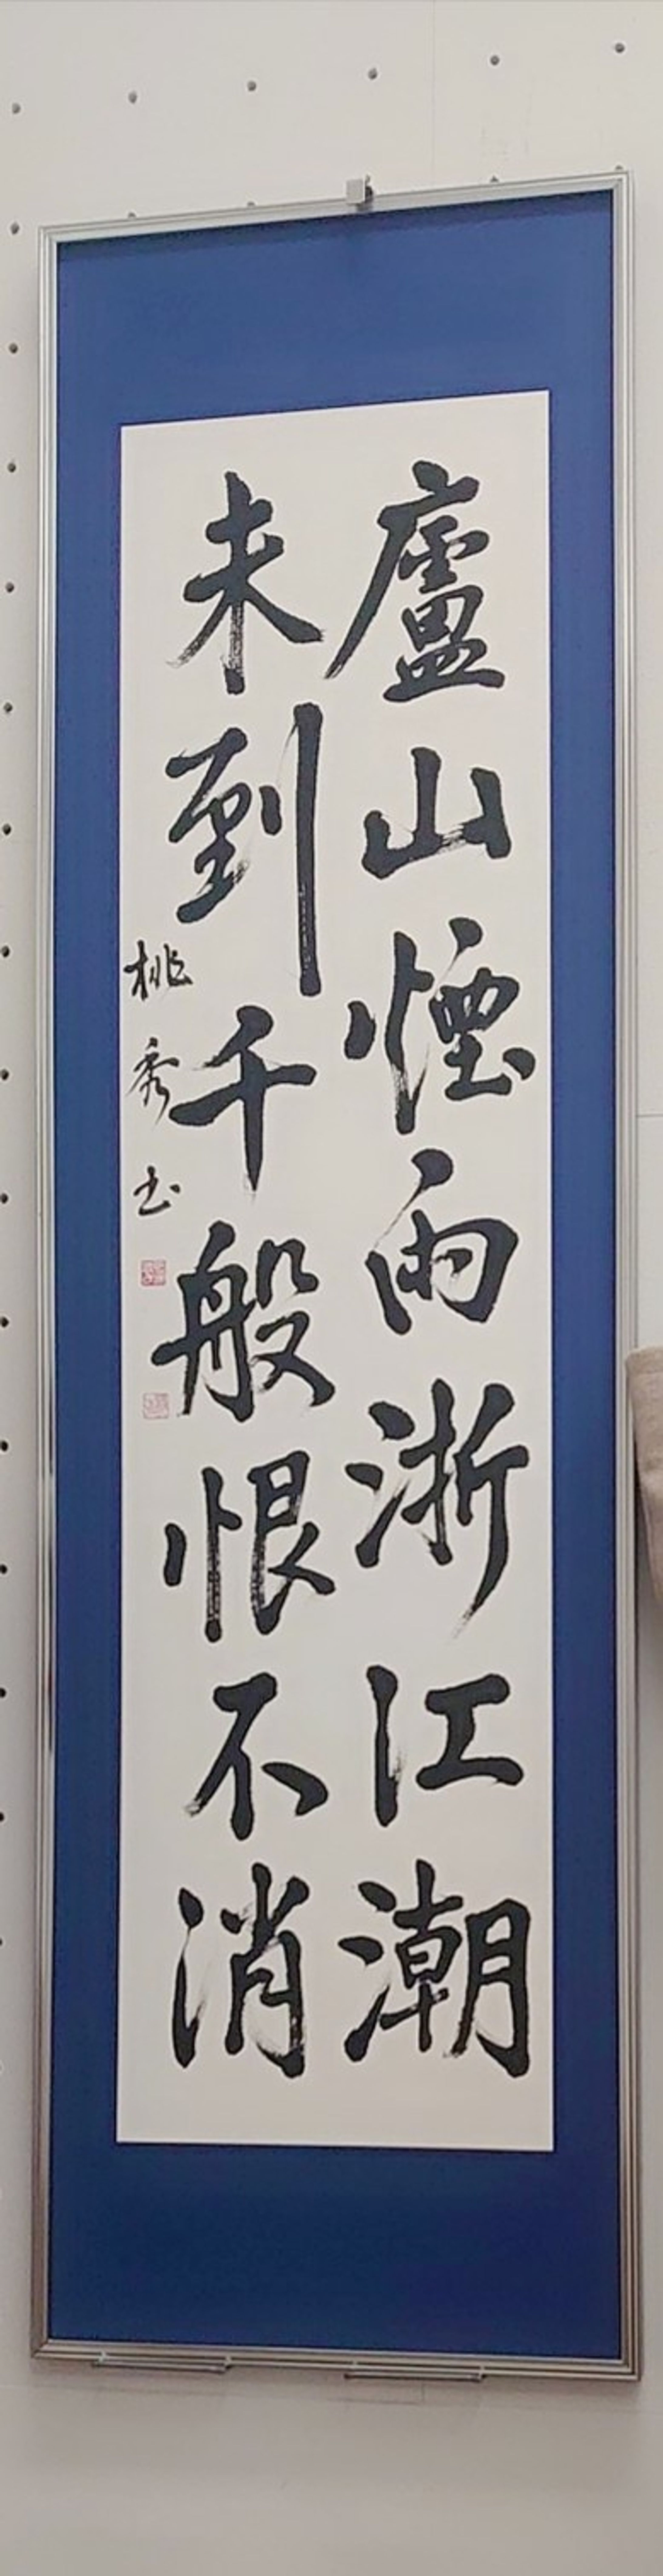 廬山煙雨浙江潮
未到千般恨不消
桃秀书